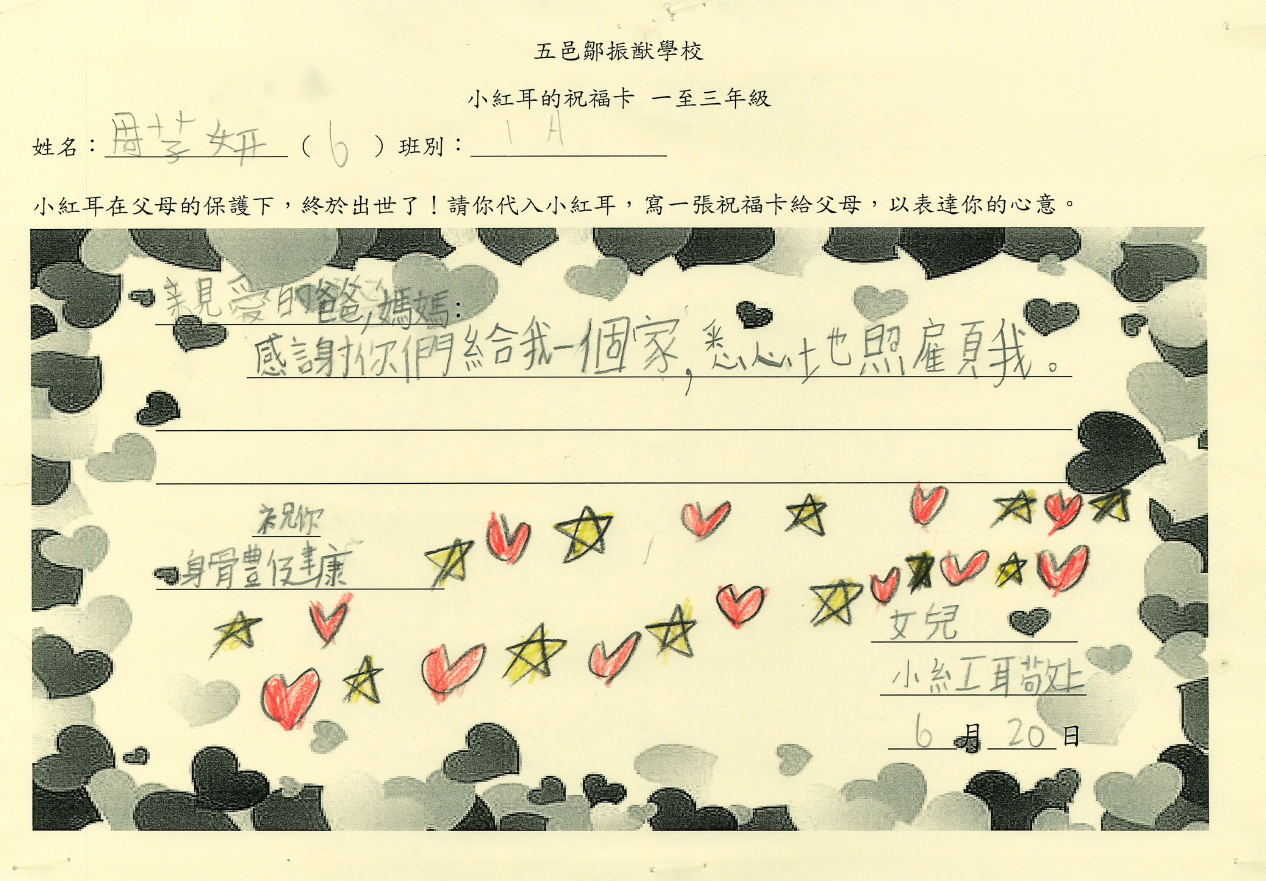 五邑鄒振猷學校
小紅耳的祝福卡 一至三年級
姓名：周芓妍（ 6 ）班別： 1A
小紅耳在父母的保護下，終於出世了！請你代入小紅耳，寫一張祝福卡給父母，以表達你的心意。
親愛的爸爸,媽媽:
感謝你們給我一個家,悉心地照顧我。
祝你
身體健康
女兒
小紅耳敬上
6 月 20 日